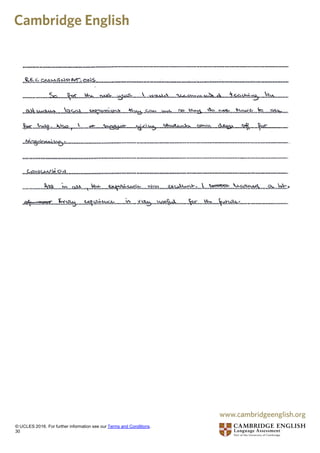 Cambridge English
RECOMMENDATIONS
So for the next year I would recommend teaching the
students basic expressions they can use so they do not have to ask
for help. Also, I suggest giving students some days off for
sightseeing.
CONCLUSION
All in all, the experience was excellent. I learned a lot.
Every experience is very useful for the future.
www.cambridgeenglish.org
© UCLES 2016. For further information see our Terms and Conditions.
30
CAMBRIDGE ENGLISH
Language Assessment
Part of the University of Cambridge